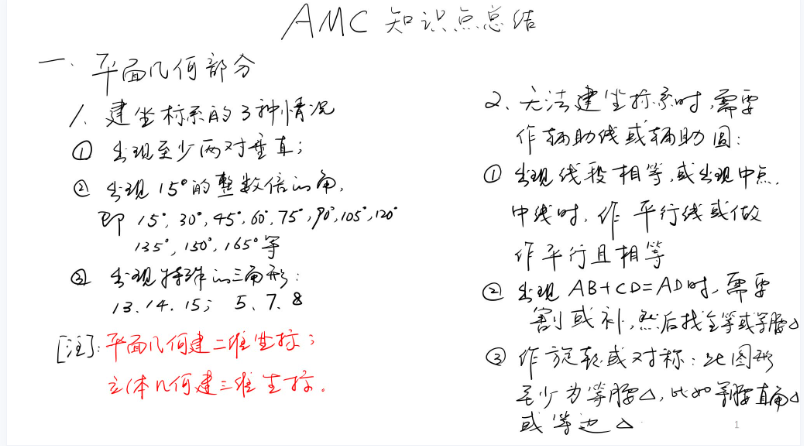 AMC 知识点总结
一、平面几何部分
1、建坐标系的3种情况
① 出现至少两对垂直；
② 出现15°的整数倍的角，
即 15°, 30°, 45°, 60°, 75°, 90°, 105°, 120°
135°, 150°, 165°等
③ 出现特殊的三角形：
13、14、15； 5、7、8
[注]：平面几何建二维坐标；
立体几何建三维坐标。
2、无法建坐标系时，需要
作辅助线或辅助圆：
① 出现线段相等，或出现中点、
中线时，作平行线或做
作平行且相等
② 出现 AB+CD=AD时，需要
割或补，然后找全等或等腰△
③ 作旋转或对称：此图形
至少为等腰△，比如等腰直角△
或等边△
1